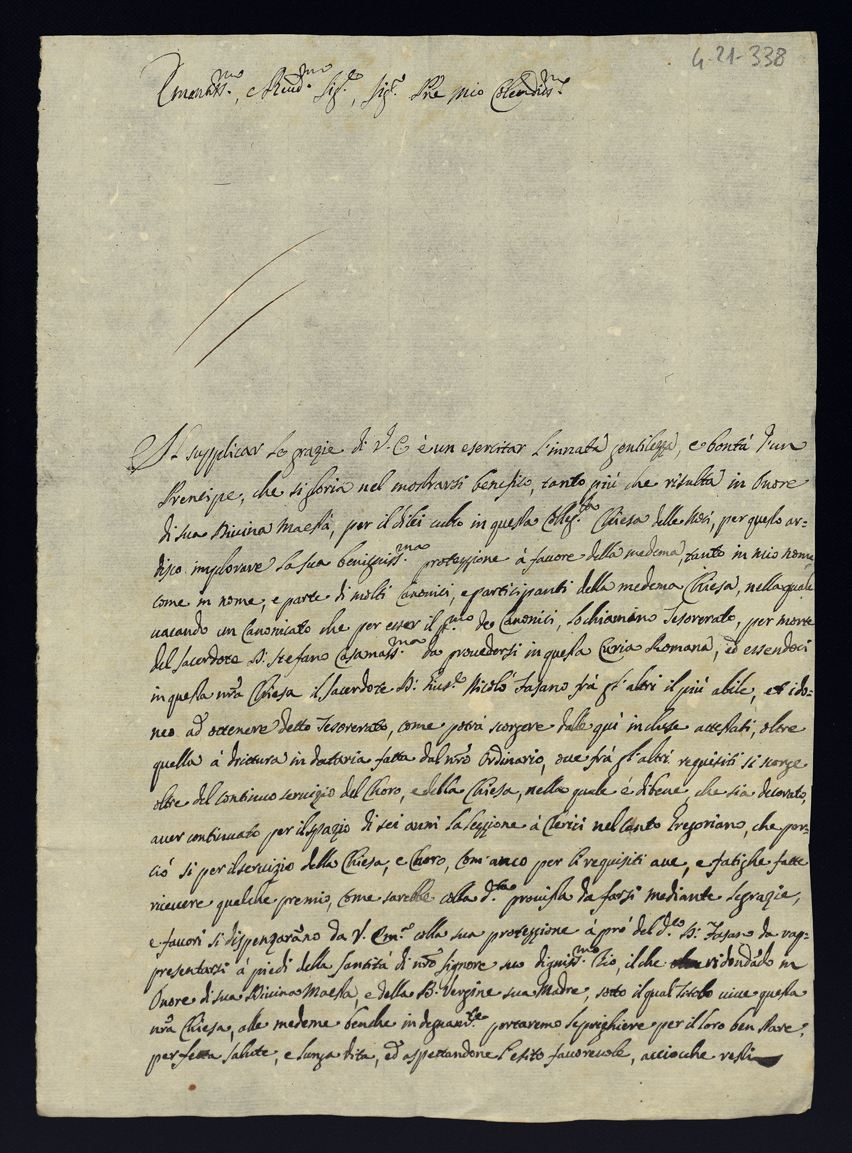 4-21-338
Eminentiss.mo, e Reud.mo Sig.re, Sig.r P̃re mio Colendiss.mo
Il supplicar le grazie di V. E è un esercitar l'innata gentilezza, e bontà d'un
Prencipe, che si gloria nel mostrarsi benefico, tanto più che risulta in onore
di sua Divina Maestà, per il di lei culto in questa Colleg.ta Chiesa delle, per questo ar=
disco implorare la sua benigniss.ma protezzione à favore della medema, tanto in mio nome
come in nome, e parte di molti Canonici, e participanti della medema Chiesa, nella quale
uacando un Canonicato che per esser il p.mo de Canonici, lo chiamano Tesorerato, per morte
del Sacerdote D. Stefano Casamass.ma da prouedersi in questa Curia Romana, ed essendoci
in questa nr̃a Chiesa il Sacerdote D. Nicolò Fasano frà gl'altri il più abile, et ido=
neo ad ottenere detto Tesorerato, come potrà scorgere dalle qui incluse attestati, oltre
quella à drittura in dataria fatta dal nr̃o Ordinario, oue frà gl'altri requisiti si scorge
oltre del continuo seruizio del Choro, e della Chiesa, nella quale è di bene, che sia decorato,
auer continuato per il spazio di sei anni la lezzione à Clerici nel Canto Gregoriano, che per=
ciò si per il seruizio della Chiesa, e Choro, com'anco per li requisiti aue, e fatighe fatte
riceuere qualche premio, come sarebbe colla d.ta prouista da farsi mediante le grazie,
e fauori si dispenzarãno da V. Em.a colla sua protezzione à prò del d.to D. Fasano da rap=
presentarsi à piedi della Santità di nr̃o Signore suo digniss.mo Zio, il che ridondãdo in
onore di sua Diuina Maestà, e della B. Vergine sua Madre, sotto il qual titolo uiue questa
nr̃a Chiesa, alle medeme benche indegnam.te portaremo le preghiere per il loro ben stare,
perfetta salute, e lunga uita, ed aspettandone l'esito fauoreuole, accioche resti